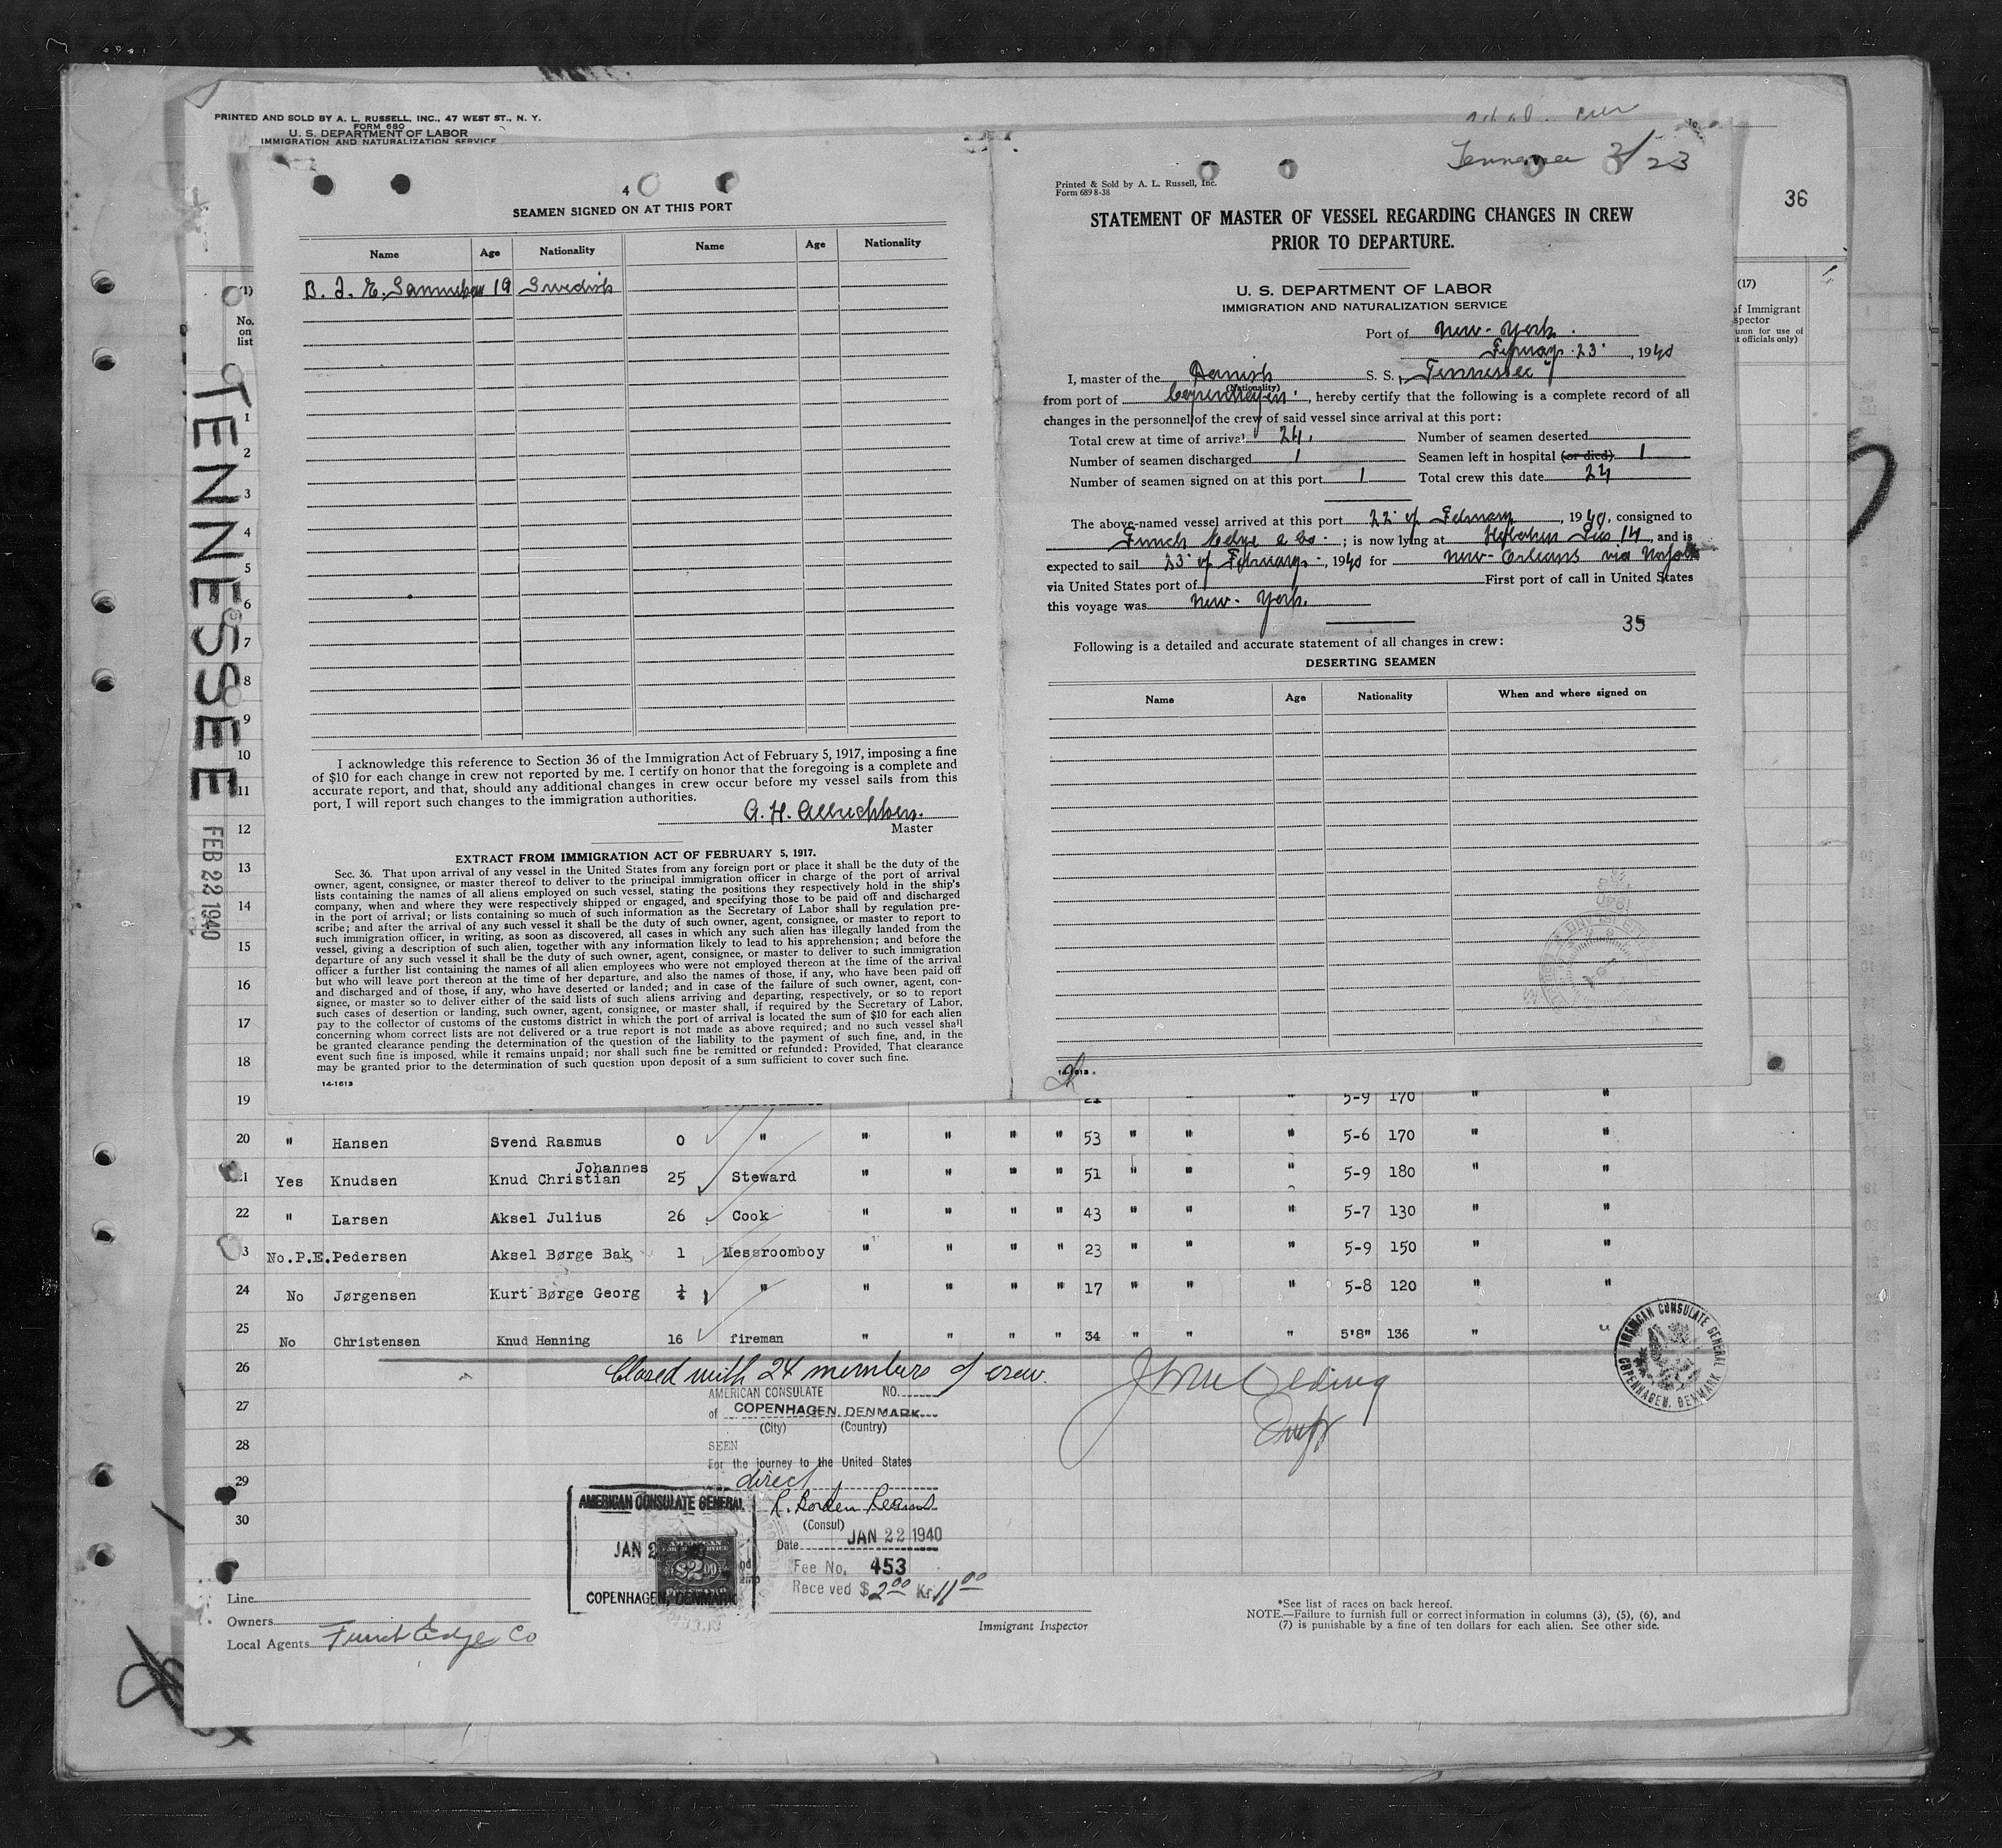 PRINTED AND SOLD BY A. L. RUSSELL, INC., 47 WEST ST., N. Y.
FORM 680
U. S. DEPARTMENT OF LABOR
IMMIGRATION AND NATURALIZATION SERVICE
4
SEAMEN SIGNED ON AT THIS PORT
Name Age Nationality Name Age Nationality
B. J. E. 19 Swedish
I acknowledge this reference to Section 36 of the Immigration Act of February 5, 1917, imposing a fine
of $10 for each change in crew not reported by me. I certify on honor that the foregoing is a complete and
accurate report, and that, should any additional changes in crew occur before my vessel sails from this
port, I will report such changes to the immigration authorities.
A. H.
Master
EXTRACT FROM IMMIGRATION ACT OF FEBRUARY 5, 1917.
Sec. 36. That upon arrival of any vessel in the United States from any foreign port or place it shall be the duty of the
owner, agent, consignee, or master thereof to deliver to the principal immigration officer in charge of the port of arrival
lists containing the names of all aliens employed on such vessel, stating the positions they respectively hold in the ship's
company, when and where they were respectively shipped or engaged, and specifying those to be paid off and discharged
in the port of arrival; or lists containing so much of such information as the Secretary of Labor shall by regulation pre-
scribe; and after the arrival of any such vessel it shall be the duty of such owner, agent, consignee, or master to report to
such immigration officer, in writing, as soon as discovered, all cases in which any such alien has illegally landed from the
vessel, giving a description of such alien, together with any information likely to lead to his apprehension; and before the
departure of any such vessel it shall be the duty of such owner, agent, consignee, or master to deliver to such immigration
officer a further list containing the names of all alien employees who were not employed thereon at the time of the arrival
but who will leave port thereon at the time of her departure, and also the names of those, if any, who have been paid off
and discharged and of those, if any, who have deserted or landed; and in case of the failure of such owner, agent, con-
signee, or master so to deliver either of the said lists of such aliens arriving and departing, respectively, or so to report
such cases of desertion or landing, such owner, agent, consignee, or master shall, if required by the Secretary of Labor,
pay to the collector of customs of the customs district in which the port of arrival is located the sum of $10 for each alien
concerning whom correct lists are not delivered or a true report is not made as above required; and no such vessel shall
be granted clearance pending the determination of the question of the liability to the payment of such fine, and, in the
event such fine is imposed, while it remains unpaid; nor shall such fine be remitted or refunded: Provided, That clearance
may be granted prior to the determination of such question upon deposit of a sum sufficient to cover such fine.
14-1613
Tennessee 2/23
Printed & Sold by A. L. Russell, Inc.
Form 689 8-38
STATEMENT OF MASTER OF VESSEL REGARDING CHANGES IN CREW
PRIOR TO DEPARTURE.
U. S. DEPARTMENT OF LABOR
IMMIGRATION AND NATURALIZATION SERVICE
Port of New-York.
February 23, 1940
I, master of the Danish S. S. "Tennessee"
(Nationality)
from port of Copenhagen, hereby certify that the following is a complete record of all
changes in the personnel of the crew of said vessel since arrival at this port:
Total crew at time of arrival 24. Number of seamen deserted
Number of seamen discharged 1 Seamen left in hospital (or died) 1
Number of seamen signed on at this port 1 Total crew this date 24
The above-named vessel arrived at this port 22 of February, 1940, consigned to
Funch Edye & Co.; is now lying at Hoboken Pier 14, and is
expected to sail 23 of February, 1940 for New-Orleans via Norfolk
via United States port of First port of call in United States
this voyage was New-York.
35
Following is a detailed and accurate statement of all changes in crew:
DESERTING SEAMEN
Name Age Nationality When and where signed on
14-1613
36
(17)
of Immigrant
spector
umn for use of
t officials only)
(1)
No.
on
list
TENNESSEE
FEB 22 1940
1
2
3
4
5
6
7
8
9
10
11
12
13
14
15
16
17
18
19 21 " " " 5-9 170 " "
20 " Hansen Svend Rasmus 0 " " " " " 53 " " " 5-6 170 " "
21 Yes Knudsen Knud Christian Johannes 25 Steward " " " " 51 " " " 5-9 180 " "
22 " Larsen Aksel Julius 26 Cook " " " " 43 " " " 5-7 130 " "
3 No.P.E. Pedersen Aksel Børge Bak 1 Messroomboy " " " " 23 " " " 5-9 150 " "
24 No Jørgensen Kurt Børge Georg " " " " " 17 " " " 5-8 120 " "
25 No Christensen Knud Henning 16 fireman " " " " 34 " " " 5'8" 136 " "
26 Closed with 24 members of crew.
27
28
29
30
AMERICAN CONSULATE NO.
of COPENHAGEN, DENMARK
(City) (Country)
SEEN
For the journey to the United States
direct
(Consul)
Date JAN 22 1940
Fee No. 453
Received $2.00 Kr 11.00
AMERICAN CONSULATE GENERAL
JAN 2
$2.00
COPENHAGEN, DENMARK
AMERICAN CONSULATE GENERAL
COPENHAGEN, DENMARK
Line
Owners
Local Agents Funch Edye Co
Immigrant Inspector
*See list of races on back hereof.
NOTE.—Failure to furnish full or correct information in columns (3), (5), (6), and
(7) is punishable by a fine of ten dollars for each alien. See other side.